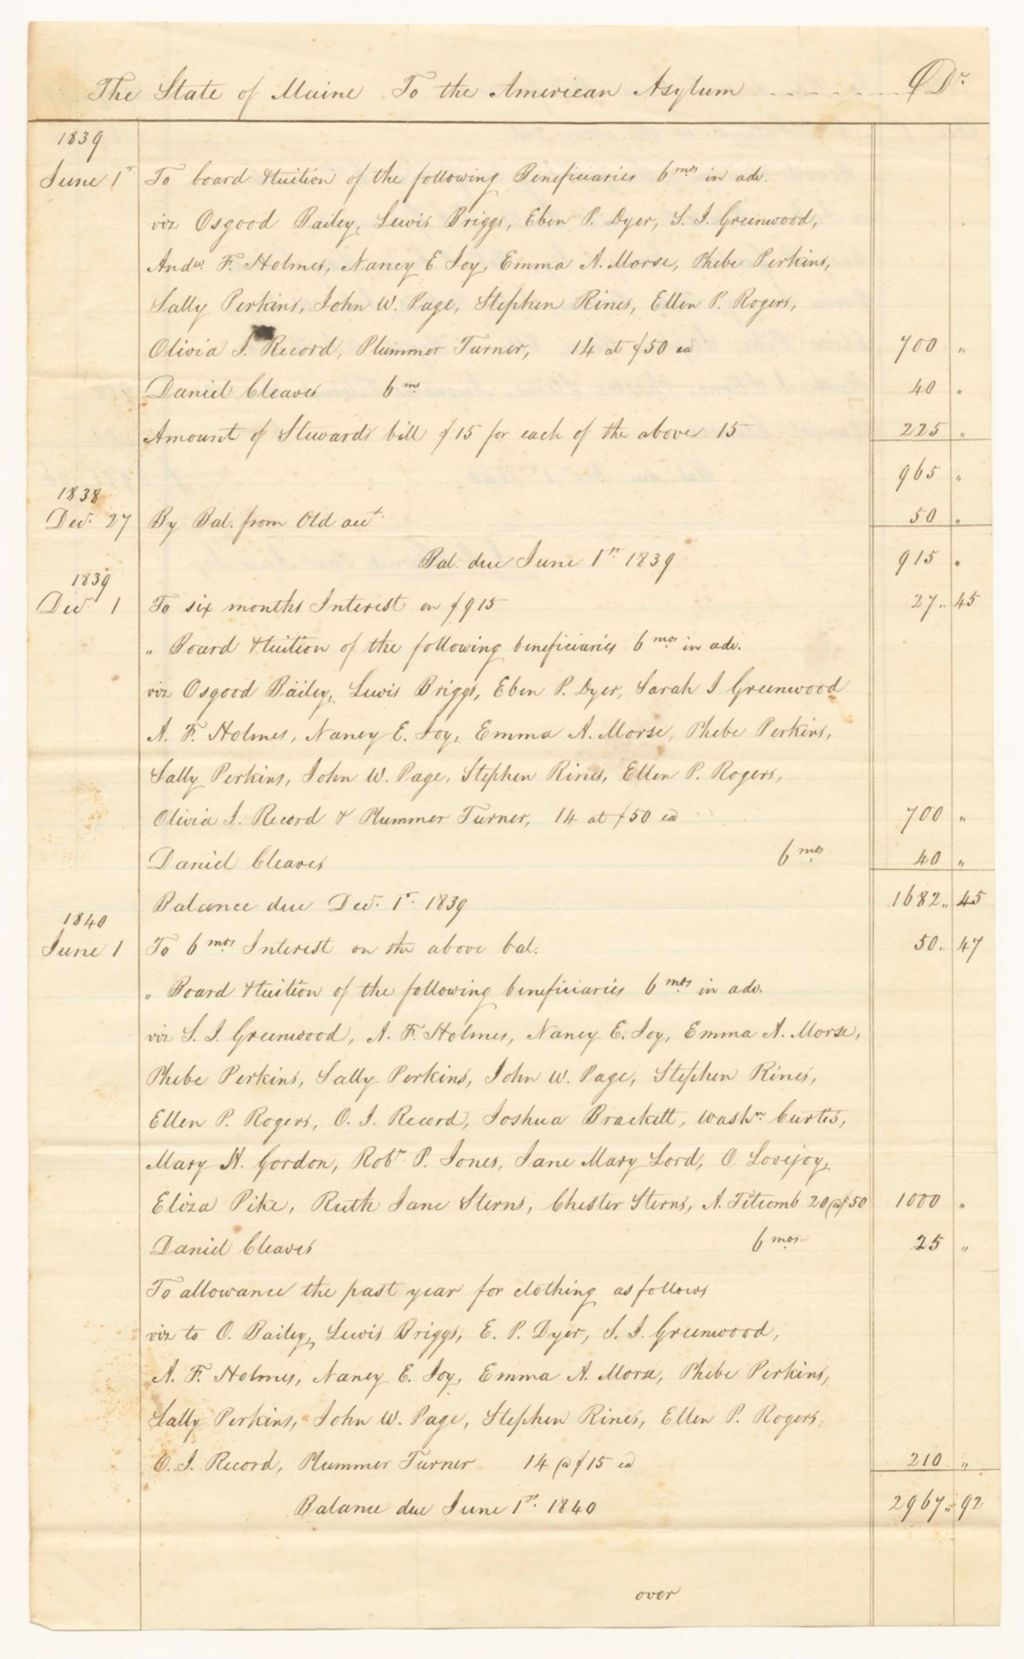 The State of Maine To the American Asylum ........ Dr
1839
June 1st To board & tuition of the following Beneficiaries 6 mos in adv.
viz Osgood Bailey, Lewis Briggs, Eben P. Dyer, S. J. Greenwood,
Andw F. Holmes, Nancy E. Joy, Emma A. Morse, Phebe Perkins,
Sally Perkins, John W. Page, Stephen Rines, Ellen P. Rogers,
Olivia J. Record, Plummer Turner, 14 at $50 ea 700 "
Daniel Cleaves 6 mo 40 "
Amount of Stewards bill $15 for each of the above 15 225 "
965 "
1838
Dec. 27 By Bal. from Old acct. 50 "
Bal. due June 1st 1839 915 "
1839
Dec 1 To six months Interest on $915 27 " 45
" Board & tuition of the following beneficiaries 6 mos in adv.
viz Osgood Bailey, Lewis Briggs, Eben P. Dyer, Sarah J. Greenwood
A. F. Holmes, Nancy E. Joy, Emma A. Morse, Phebe Perkins,
Sally Perkins, John W. Page, Stephen Rines, Ellen P. Rogers,
Olivia J. Record & Plummer Turner, 14 at $50 ea 700 "
Daniel Cleaves 6 mos 40 "
Balance due Dec. 1st 1839 1682 " 45
1840
June 1 To 6 mos Interest on the above bal. 50 " 47
" Board & tuition of the following beneficiaries 6 mos in adv.
viz S. J. Greenwood, A. F. Holmes, Nancy E. Joy, Emma A. Morse,
Phebe Perkins, Sally Perkins, John W. Page, Stephen Rines,
Ellen P. Rogers, O. J. Record, Joshua Brackett, Washn Curtis,
Mary H. Gordon, Robt P. Jones, Jane Mary Lord, O. Lovejoy,
Eliza Pike, Ruth Jane Sterns, Chester Sterns, A. Titcomb 20 @ $50 1000 "
Daniel Cleaves 6 mos 25 "
To allowance the past year for clothing as follows
viz to O. Bailey, Lewis Briggs, E. P. Dyer, S. J. Greenwood,
A. F. Holmes, Nancy E. Joy, Emma A. Morse, Phebe Perkins,
Sally Perkins, John W. Page, Stephen Rines, Ellen P. Rogers,
O. J. Record, Plummer Turner 14 @ $15 ea 210 "
Balance due June 1st 1840 2967 " 92
over